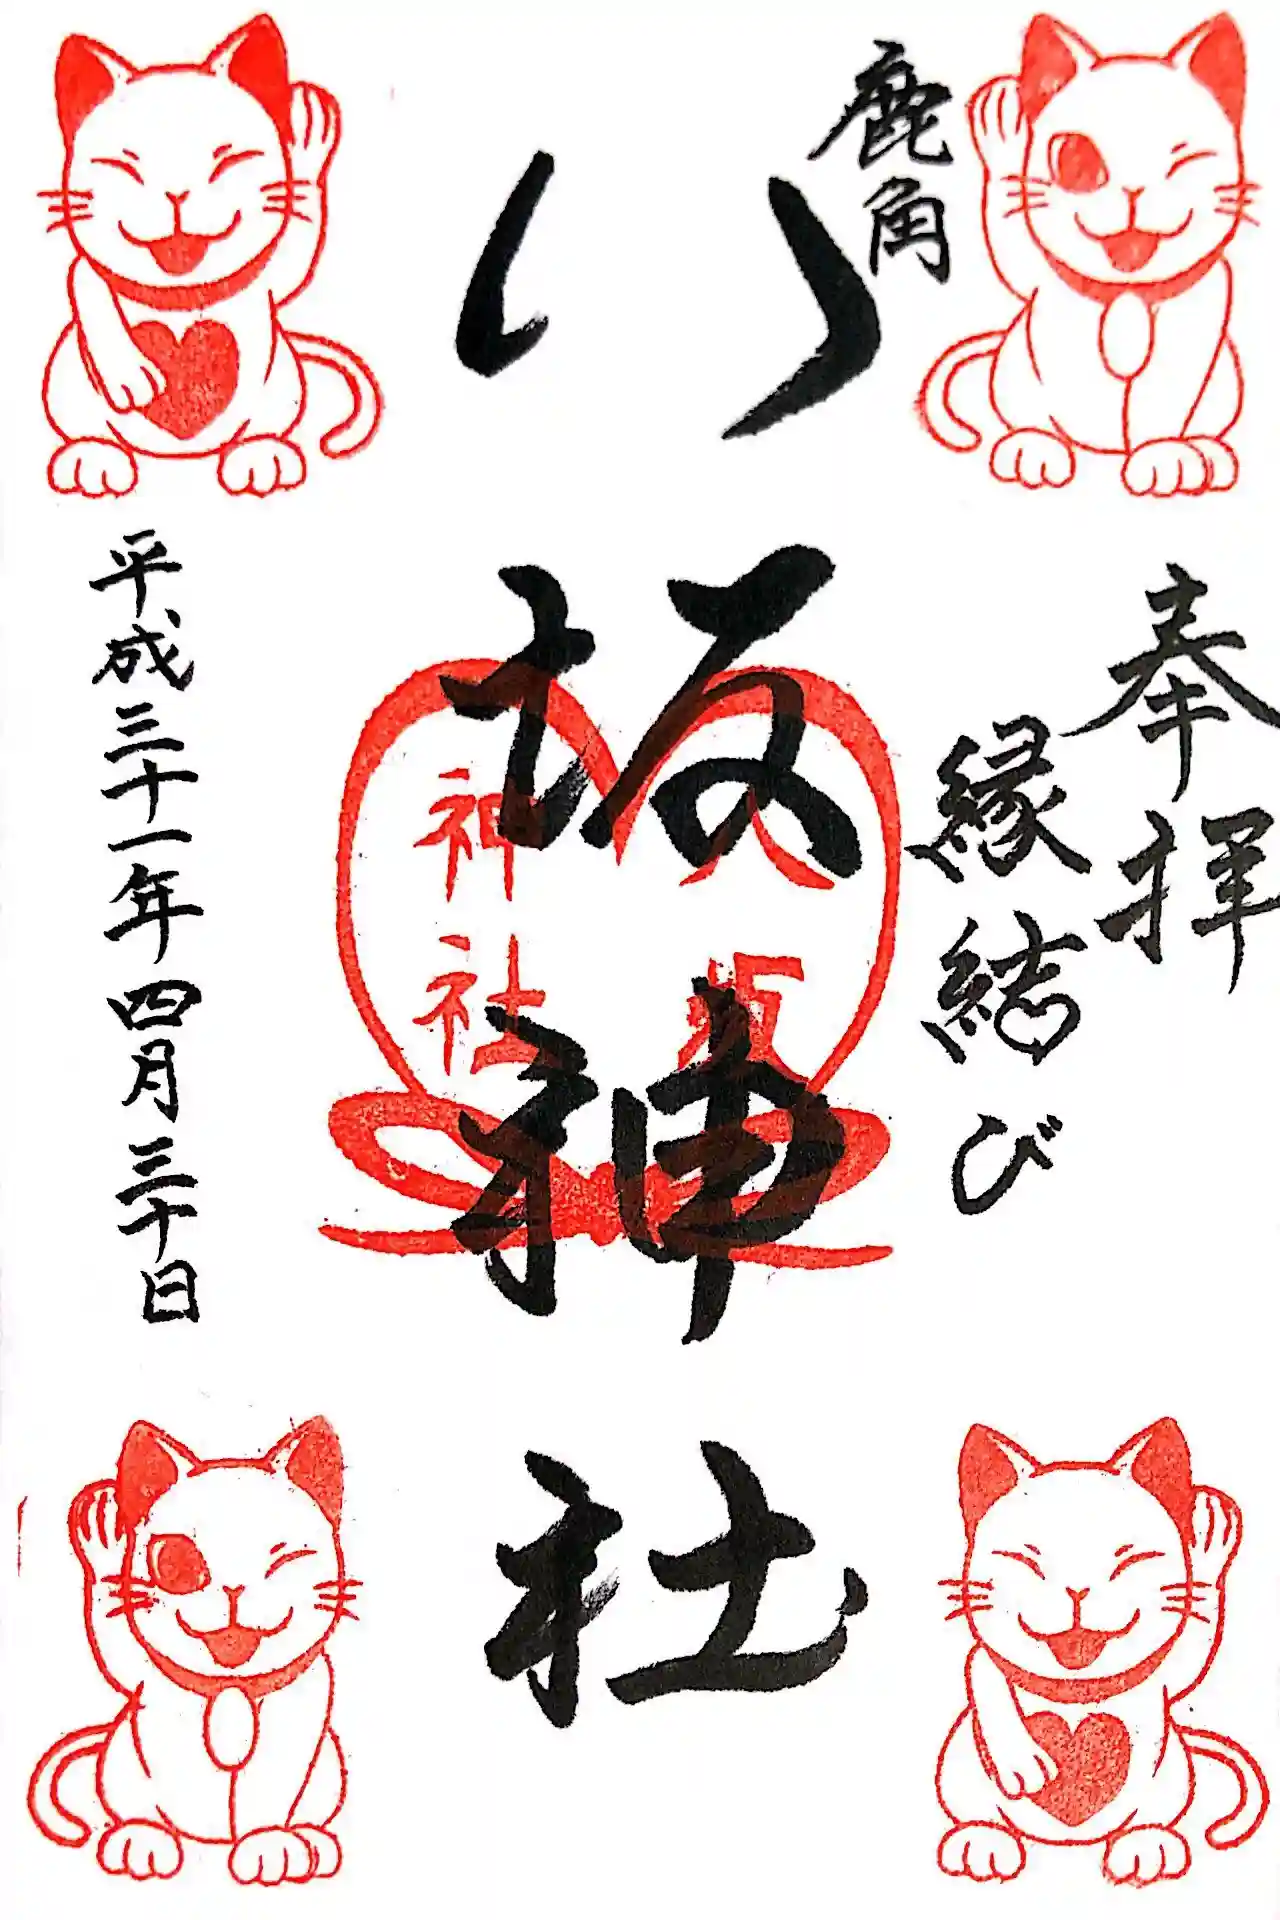 奉拝
鹿角
縁結び
八坂神社
八坂
神社
平成三十一年四月三十日